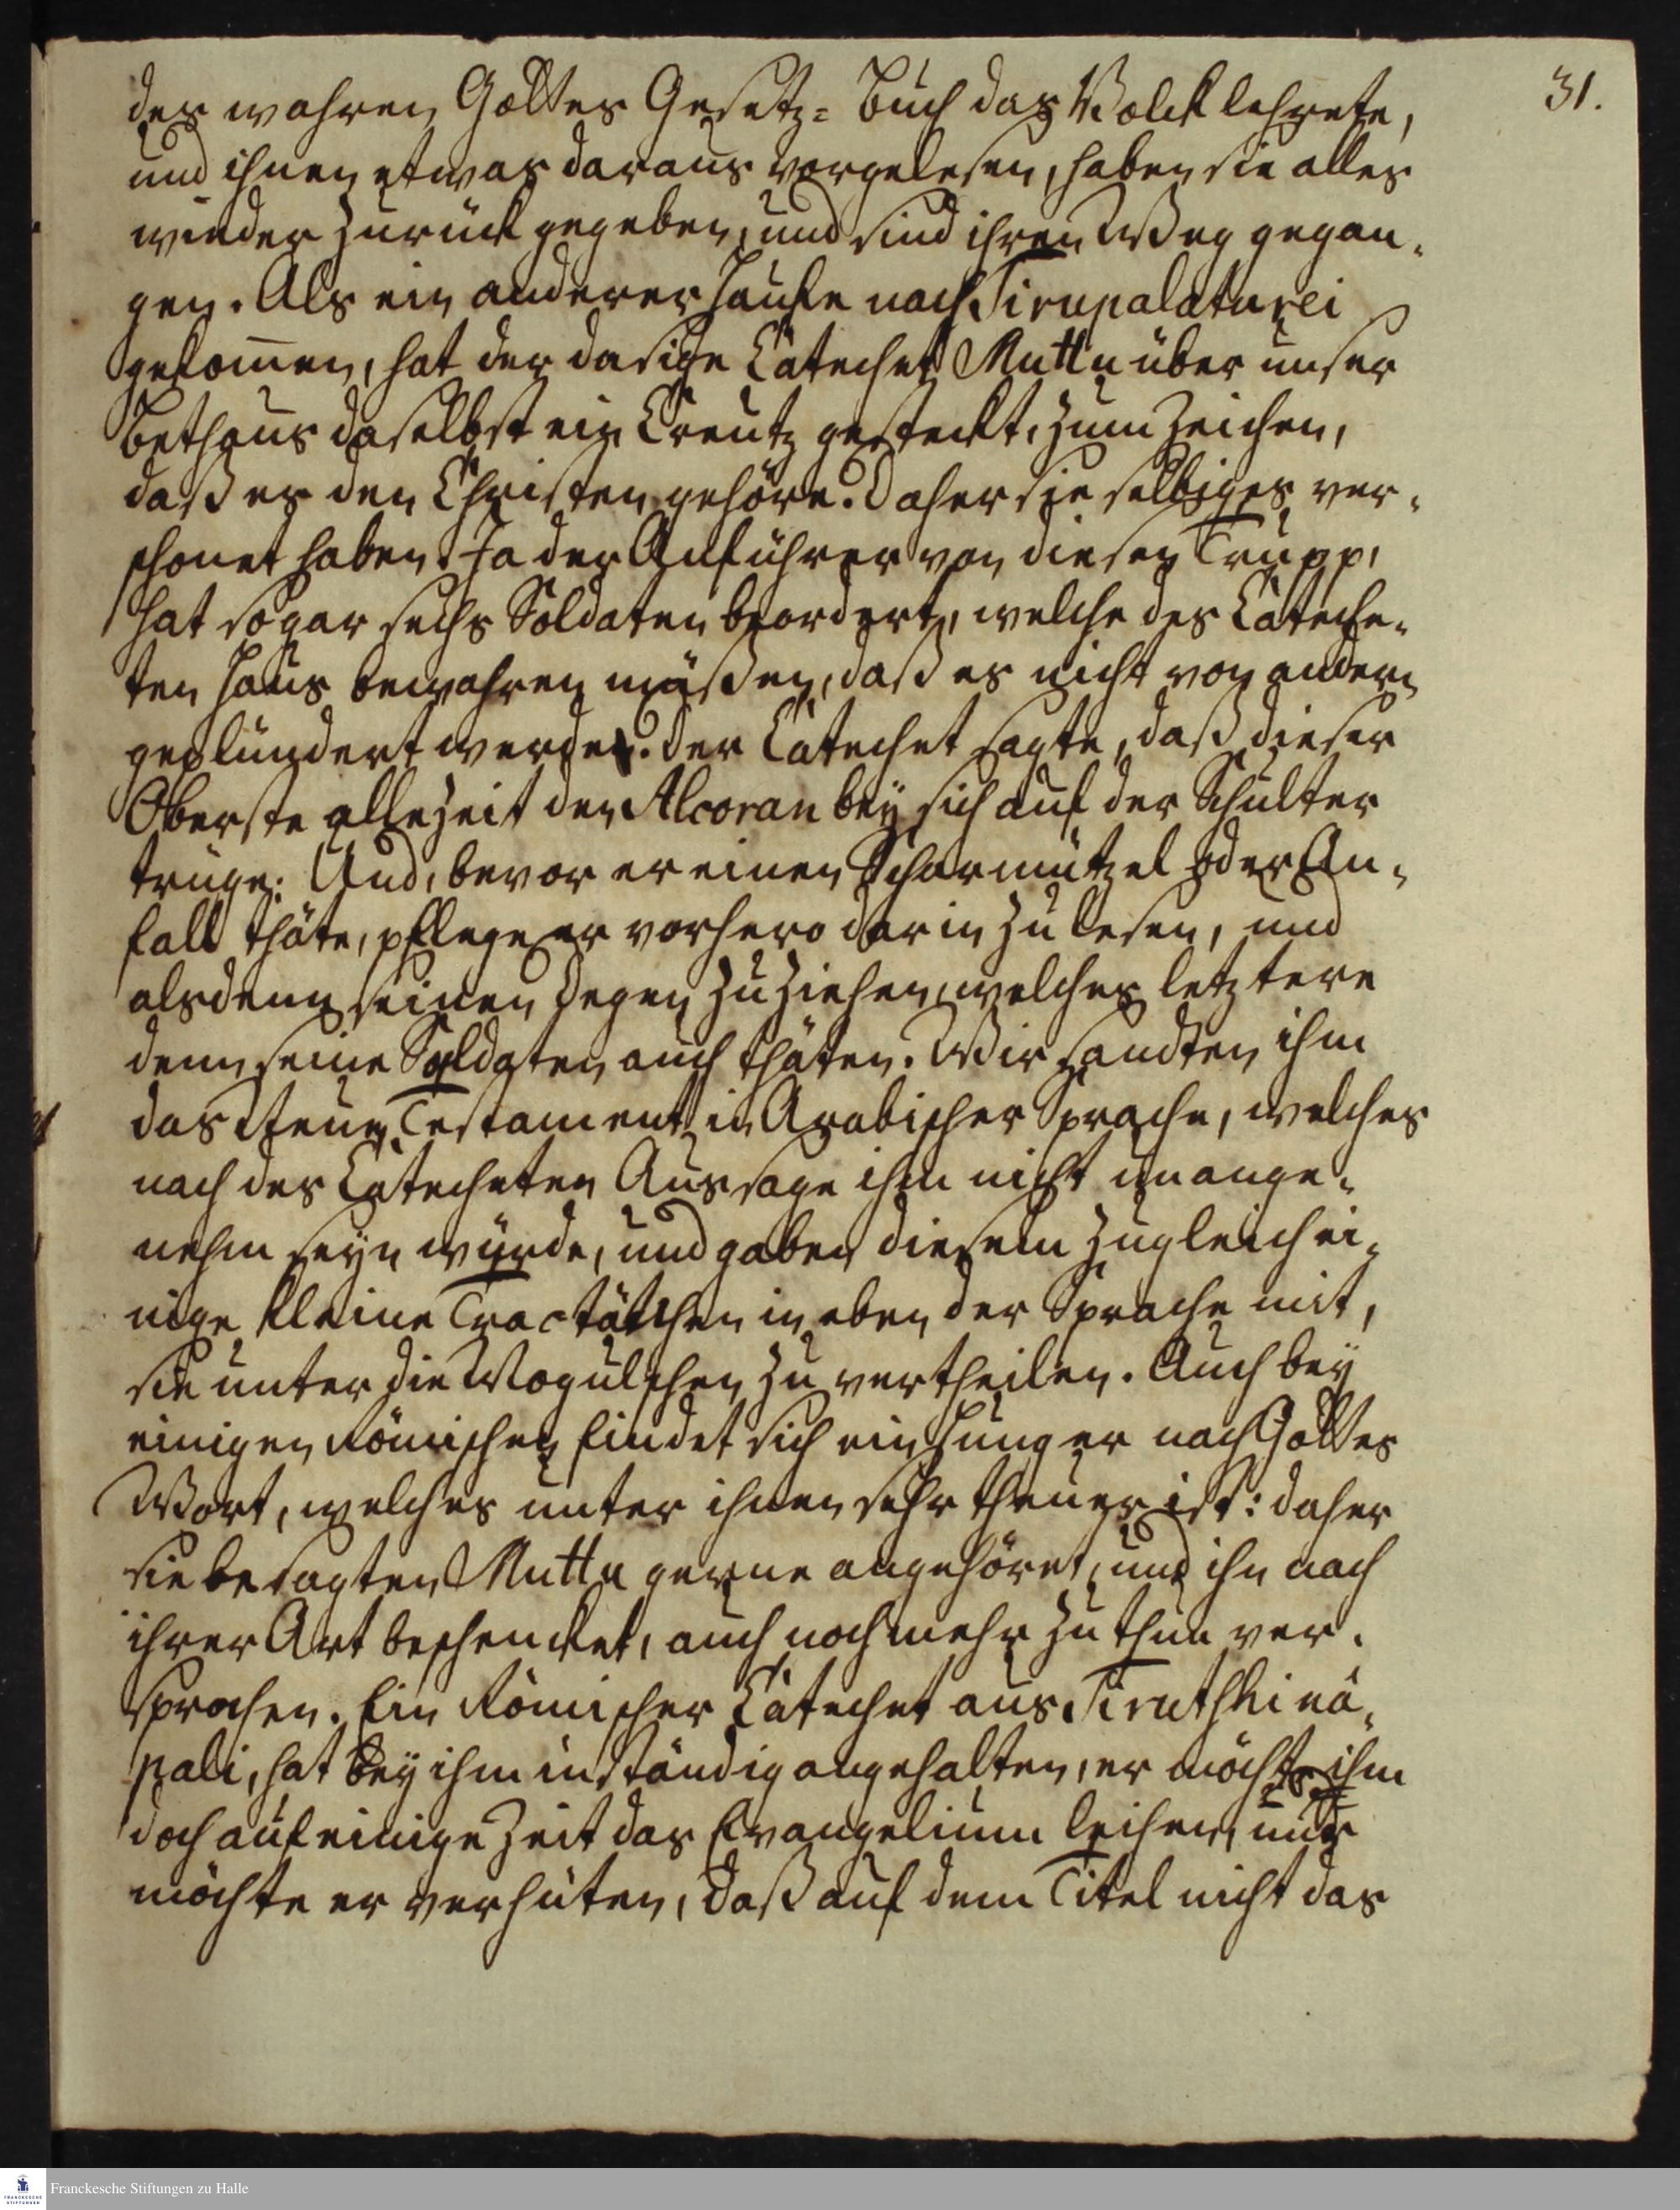 31.
des wahren Gottes Gesetz-Buch das Volck lehrete,
und ihnen etwas daraus vorgelesen, haben sie alles
wieder zurück gegeben, und sind ihren Weg gegan-
gen. Als ein anderer Haufe nach Tirupalaturei
gekommen, hat der dasige Catechet Muttu über unser
Bethaus daselbst ein Creutz gesteckt, zum Zeichen,
daß es den Christen gehöre. Daher sie selbiges ver-
schonet haben. Ja der Anführer von diesen Trupp,
hat sogar sechs Soldaten beordert, welche des Cateche-
ten Haus bewahren müßen, daß es nicht von andern
geplündert werde. Der Catechet sagte, daß dieser
Oberste allezeit den Alcoran bey sich auf der Schulter
trüge. Und, bevor er einen Scharmützel oder An-
fall thäte, pflege er vorhero darin zu lesen, und
alsdenn seinen Degen zu ziehen, welches letztere
denn seine Soldaten auch thäten. Wir sandten ihm
das Neue Testament in Arabischer Sprache, welches
nach des Catecheten Aussage ihm nicht unange-
nehm seyn würde, und gaben diesem zugleich ei-
nige kleine Tractätchen in eben der Sprache mit,
sie unter die Mogulschen zu vertheilen. Auch bey
einigen Römischen findet sich ein Hunger nach Gottes
Wort, welches unter ihnen sehr theuer ist: daher
sie besagten Muttu gerne angehöret, und ihn nach
ihrer Art beschencket, auch noch mehr zu thun ver-
sprochen. Ein Römischer Catechet aus Tirutschinä-
pali, hat bey ihm inständig angehalten, er möchte ihm
doch auf einige Zeit das Evangelium leihen, nur
möchte er verhüten, daß auf dem Titel nicht das
Franckesche Stiftungen zu Halle